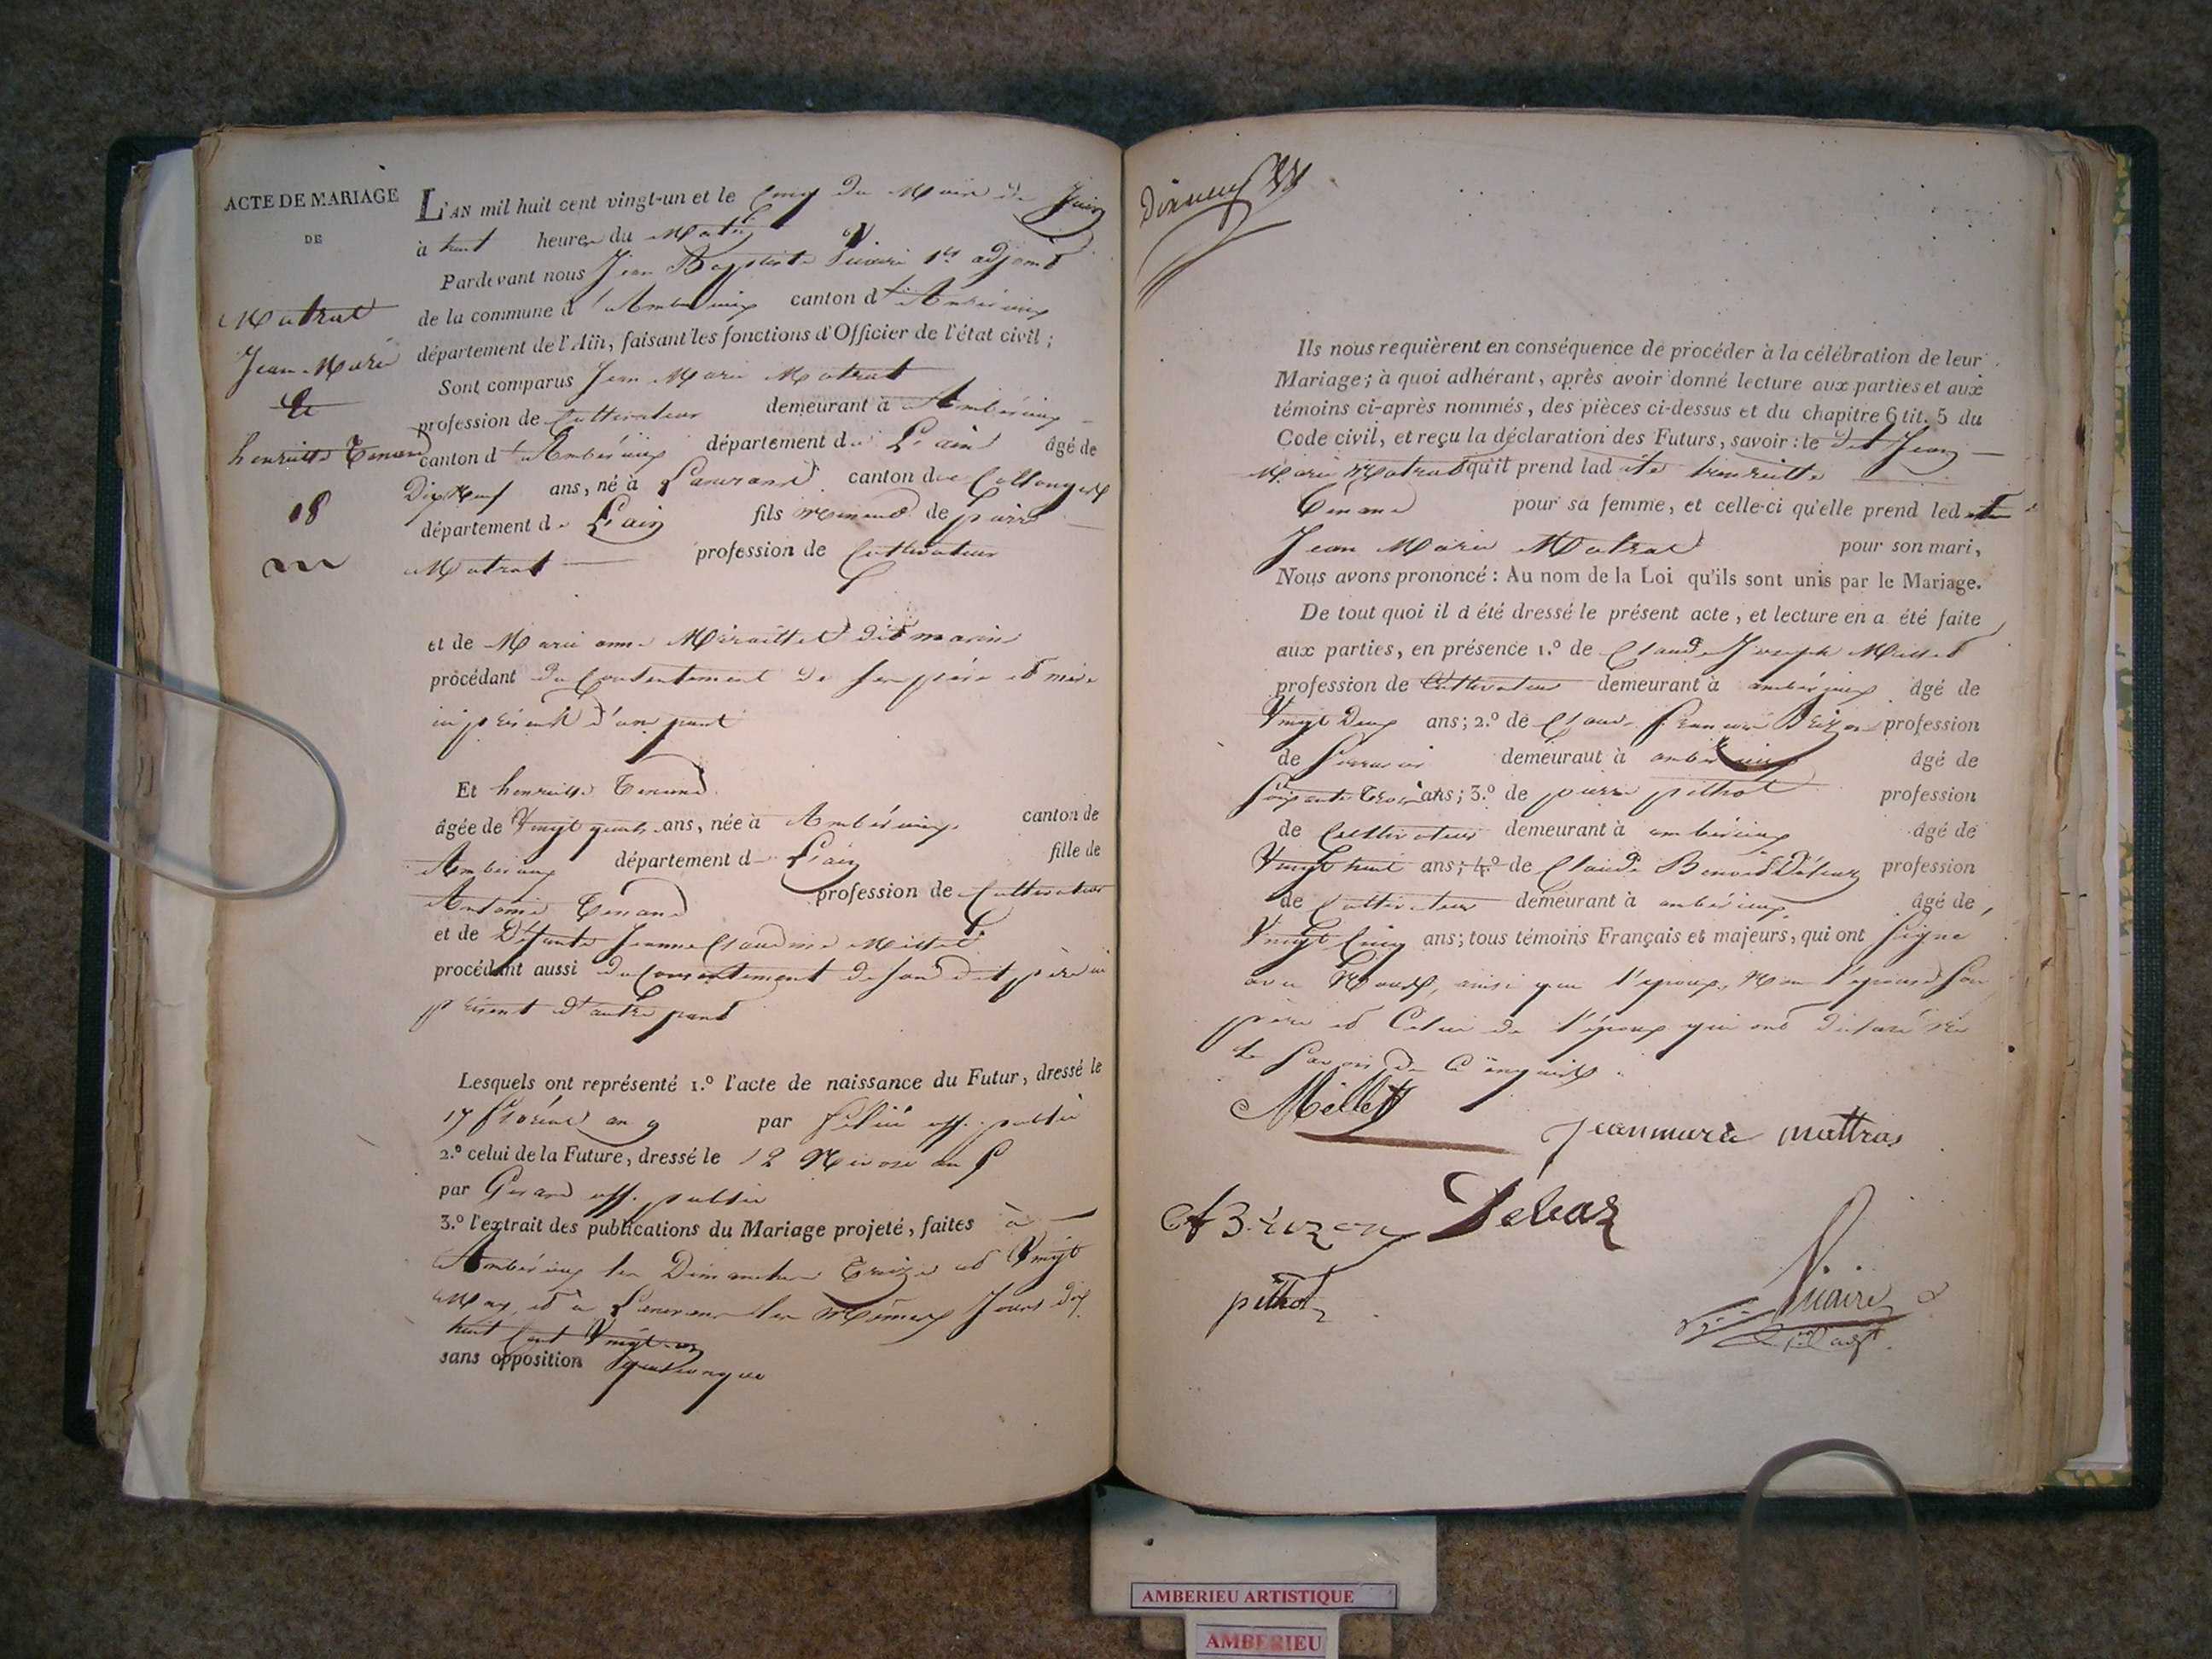 ACTE DE MARIAGE
DE
Matrat
Jean Marie
Et
henriette Tenand
18
m
L'AN mil huit cent vingt-un et le Cinq du Mois de Juin
à huit heures du Matin
Pardevant nous Jean Baptiste Vicaire 1er adjoint
de la commune d'Ambérieux canton d'Ambérieux
département de l'Ain, faisant les fonctions d'Officier de l'état civil ;
Sont comparus Jean Marie Matrat
profession de Cultivateur demeurant à Ambérieux
canton d'Ambérieux département de L'ain âgé de
Dix Neuf ans, né à canton de Collonges
département de L'ain fils mineur de pierre
Matrat profession de Cultivateur
et de Marie anne dit marin
procédant du Consentement de son père et mère
ici présents d'une part
Et henriette Tenand
âgée de Vingt quatre ans, née à Ambérieux canton de
Ambérieux département de L'ain fille de
Antoine Tenand profession de Cultivateur
et de Défunte Jeanne Claudine Millet
procédant aussi du Consentement de son dit père ici
présent d'autre part
Lesquels ont représenté 1.º l'acte de naissance du Futur, dressé le
17 floréal an 9 par off. public
2.º celui de la Future, dressé le 12 Nivose an 5
par off. public
3.º l'extrait des publications du Mariage projeté, faites à
Ambérieux les Dimanches Treize et Vingt
May, et à les mêmes Jours dix
huit Cent Vingt un
sans opposition quelconque
Ils nous requièrent en conséquence de procéder à la célébration de leur
Mariage ; à quoi adhérant, après avoir donné lecture aux parties et aux
témoins ci-après nommés, des pièces ci-dessus et du chapitre 6 tit. 5 du
Code civil, et reçu la déclaration des Futurs, savoir : le dit Jean
Marie Matrat qu'il prend lad ite henriette
Tenand pour sa femme, et celle-ci qu'elle prend led it
Jean Marie Matrat pour son mari,
Nous avons prononcé : Au nom de la Loi qu'ils sont unis par le Mariage.
De tout quoi il a été dressé le présent acte, et lecture en a été faite
aux parties, en présence 1.º de Claude Joseph Millet
profession de Cultivateur demeurant à ambérieux âgé de
Vingt Deux ans ; 2.º de Claude François Brizon profession
de demeuraut à ambérieux âgé de
Soixante Trois ans ; 3.º de pierre pithot profession
de Cultivateur demeurant à ambérieux âgé de
Vingt huit ans ; 4.º de Claude Benoit profession
de Cultivateur demeurant à ambérieux âgé de
Vingt Cinq ans ; tous témoins Français et majeurs, qui ont signé
avec Nous, ainsi que l'époux, Non l'épouse son
père et Celui de l'époux qui ont déclaré ne
le savoir de ce enquis
Millet
jeanmarie mattras
Debar
pithot
Vicaire
AMBERIEU ARTISTIQUE
AMBERIEU